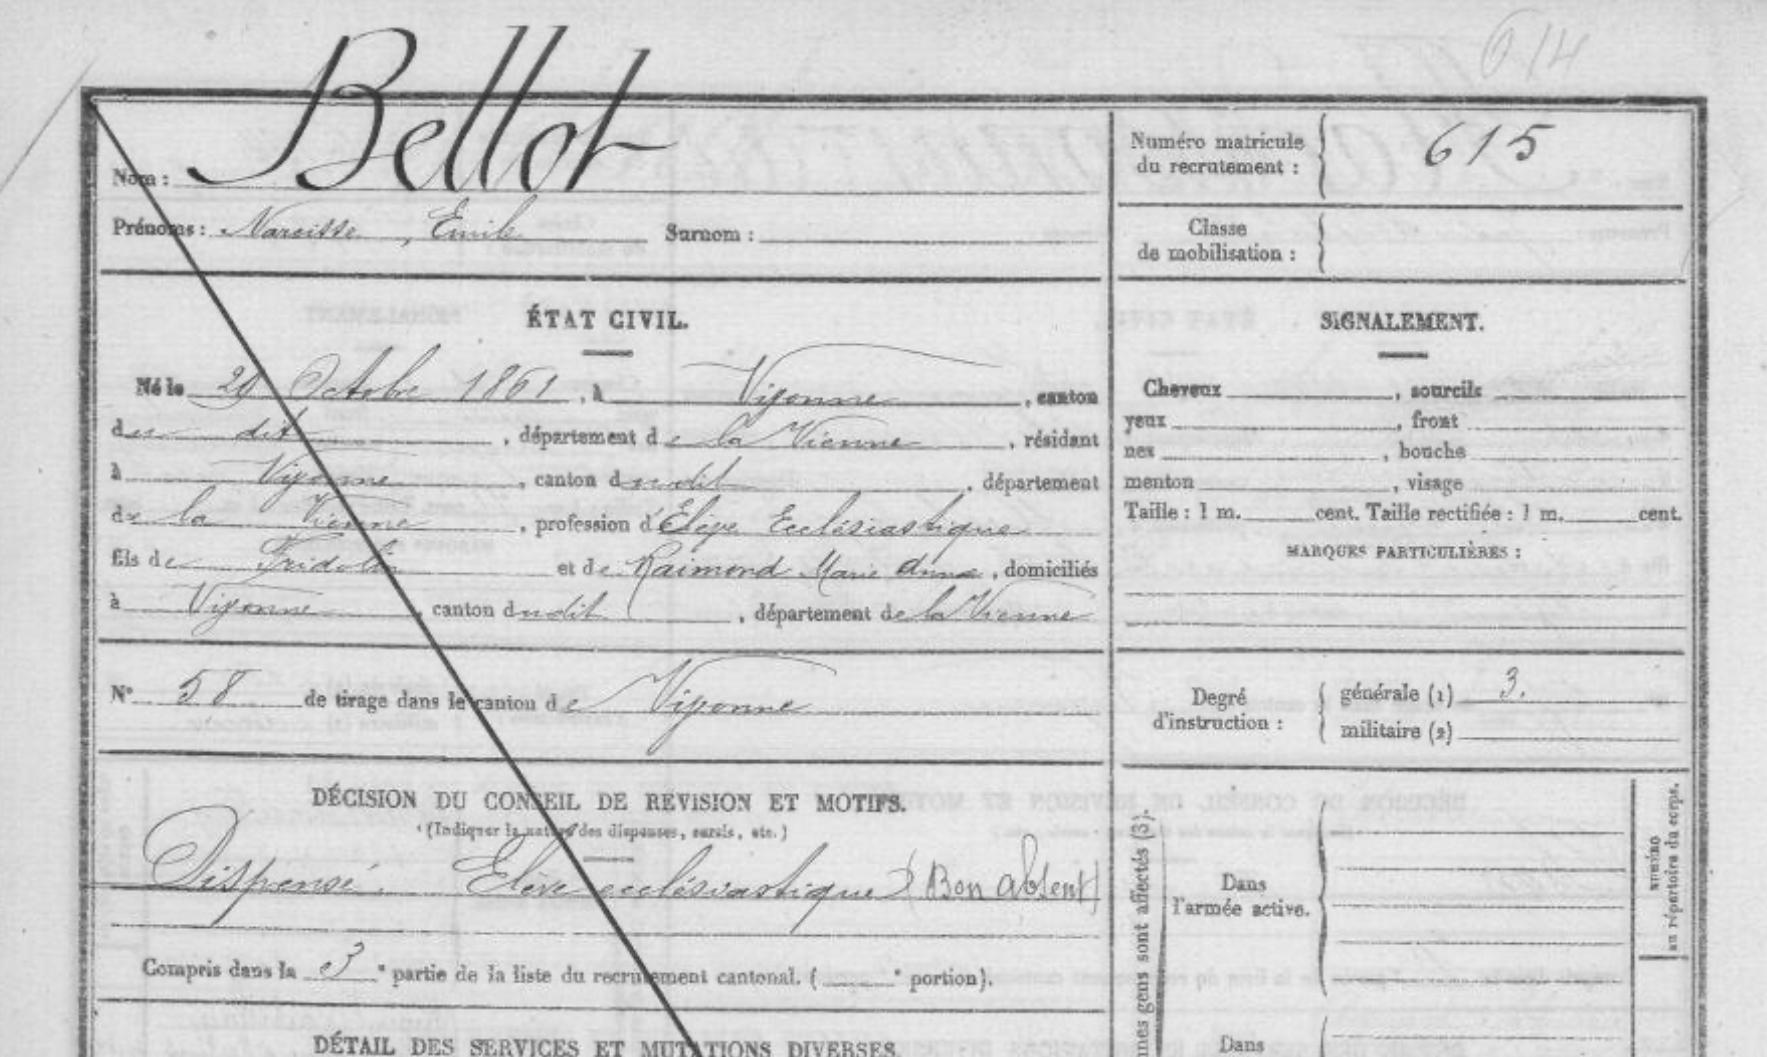 614
Bellot
Nom :
Prénoms : Narcisse, Emile Surnom :
Numéro matricule
du recrutement : 615
Classe
de mobilisation :
ÉTAT CIVIL.
Né le 29 Octobre 1861, à Vivonne, canton
du dit, département de la Vienne, résidant
à Vivonne, canton dudit, département
de la Vienne, profession d'Elève Ecclésiastique
fils de Fridolin et de Raimond Marie Anne, domiciliés
à Vivonne, canton dudit, département de la Vienne
SIGNALEMENT.
Cheveux , sourcils
yeux , front
nez , bouche
menton , visage
Taille : 1 m. cent. Taille rectifiée : 1 m. cent.
MARQUES PARTICULIÈRES :
N° 58 de tirage dans le canton de Vivonne
Degré
d'instruction :
générale (1) 3.
militaire (2)
DÉCISION DU CONSEIL DE RÉVISION ET MOTIFS.
(Indiquer la nature des dispenses, sursis, etc.)
Dispensé. Elève ecclésiastique (Bon absent)
Compris dans la 3e partie de la liste du recrutement cantonal. ( e portion).
DÉTAIL DES SERVICES ET MUTATIONS DIVERSES.
gens sont affectés (3).
Dans
l'armée active.
numéro
au répertoire du corps.
Dans